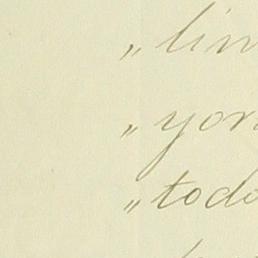 „ lin
„ yon
„ todo